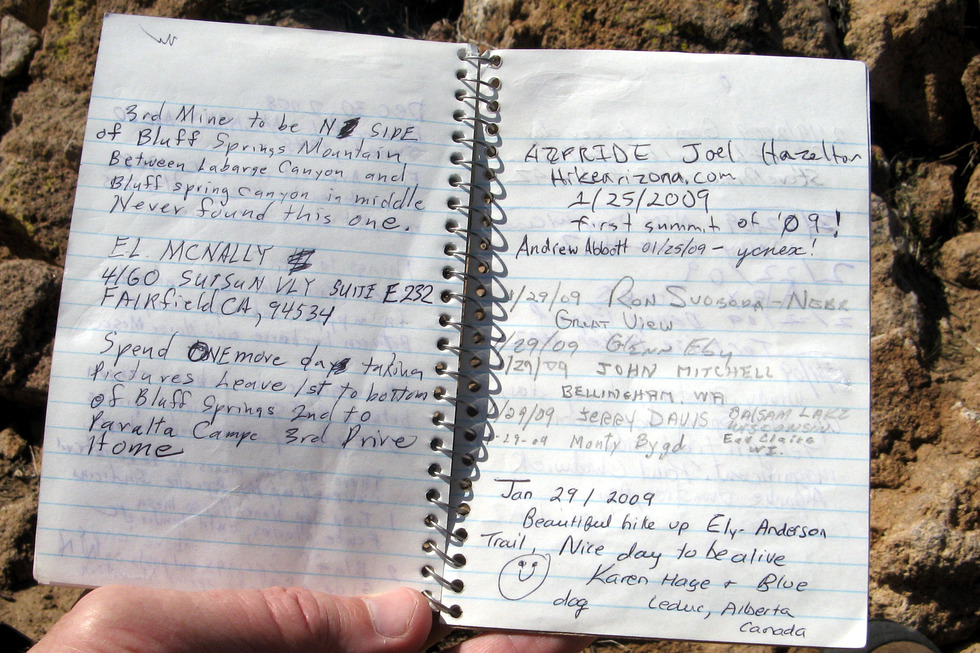 3rd Mine to be N SIDE
of Bluff Springs Mountain
Between Labarge Canyon and
Bluff spring canyon in middle
Never found this one.
EL. MCNALLY
4160 SUISUN VLY SUITE E 232
FAIRfield CA, 94534
Spend ONE more day taking
Pictures Leave 1st to bottom
of Bluff Springs 2nd to
Paralta Campe 3rd Drive
Home
AZPRIDE Joel Hazelton
Hikearizona.com
1/25/2009
first summit of '09!
Andrew Abbott 01/25/09 -
1/29/09 RON SVOBODA - NEBR
GREAT VIEW
1/29/09 GLENN EBY
1/29/09 JOHN MITCHELL
BELLINGHAM, WA
1/29/09 JERRY DAVIS BALSAM LAKE
WISCONSIN
-29-09 Monty Bygd Eau Claire
WI.
Jan 29/2009
Beautiful hike up Ely-Anderson
Trail. Nice day to be alive
Karen Hage + Blue
dog Leduc, Alberta
Canada